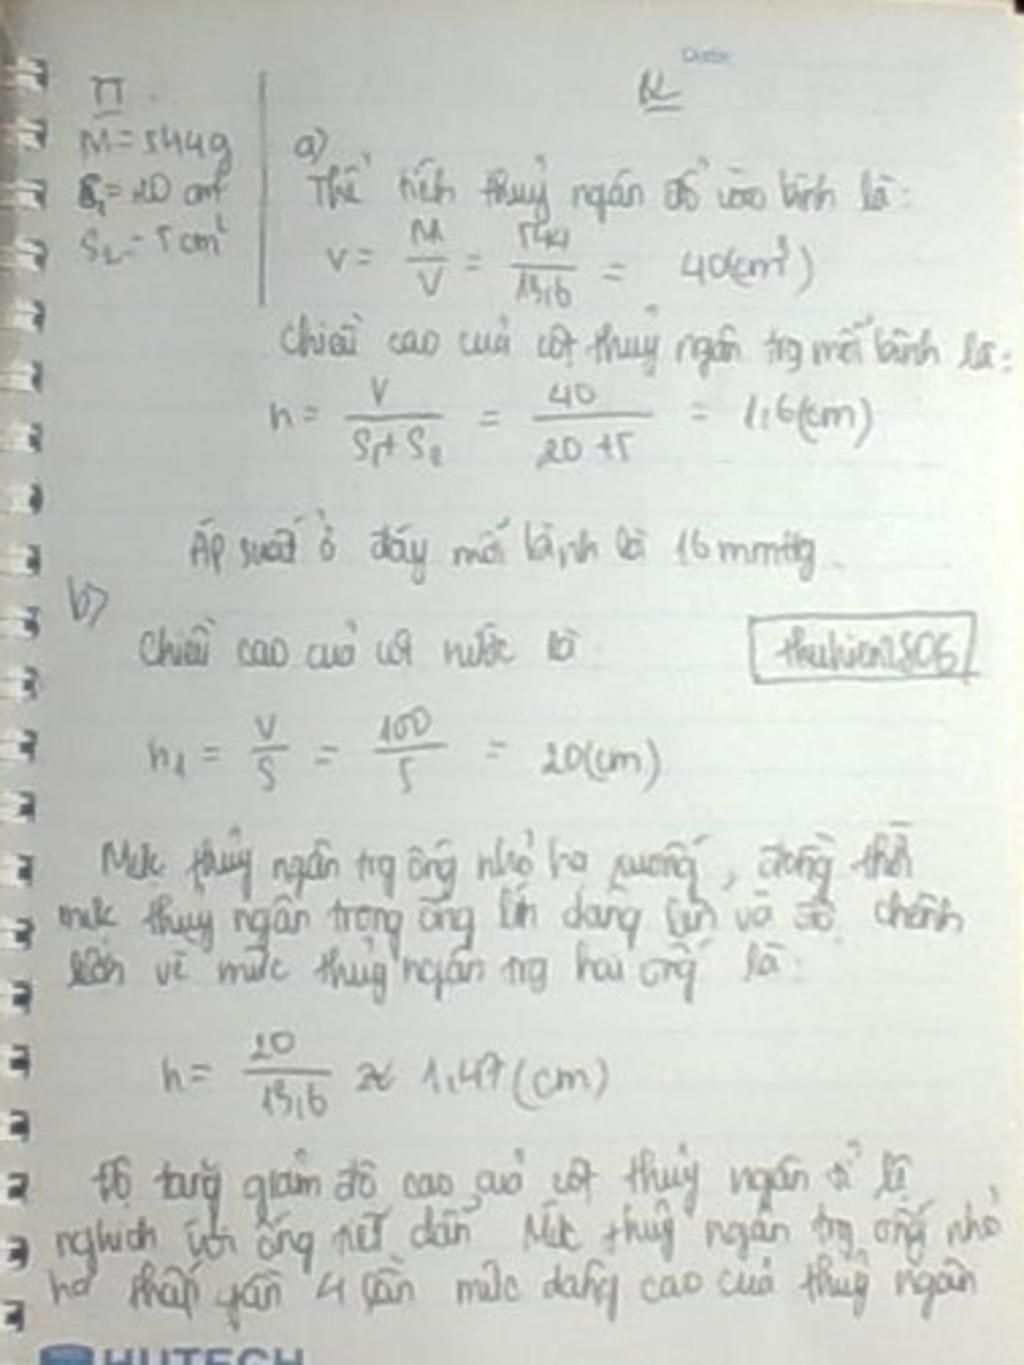 Date:
TT
BL
M = 544g
S₁ = 20 cm²
S₂ = 5 cm²
a)
Thể tích thuỷ ngân đổ vào bình là:
V = M/V = 544/13,6 = 40(cm³)
Chiều cao cuả cột thuỷ ngân trg mỗi bình là:
h = V/S₁+S₂ = 40/20+5 = 1,6(cm)
Áp suất ở đáy mỗi bình là 16mmHg.
b)
Chiều cao cuả cột nước là
thuhien2806
h₁ = V/S = 100/5 = 20(cm)
Mức thủy ngân trg ống nhỏ hạ xuống, đồng thời
mức thuỷ ngân trong ống lớn dâng lên và độ chênh
lệch về mức thuỷ ngân trg hai ống là:
h = 20/13,6 ≈ 1,47 (cm)
Độ tăng giảm độ cao cuả cột thuỷ ngân tỉ lệ
nghịch với ống tiết diện Mức thuỷ ngân trg ống nhỏ
hạ thấp gấp 4 lần mức dâng cao cuả thuỷ ngân
HUTECH